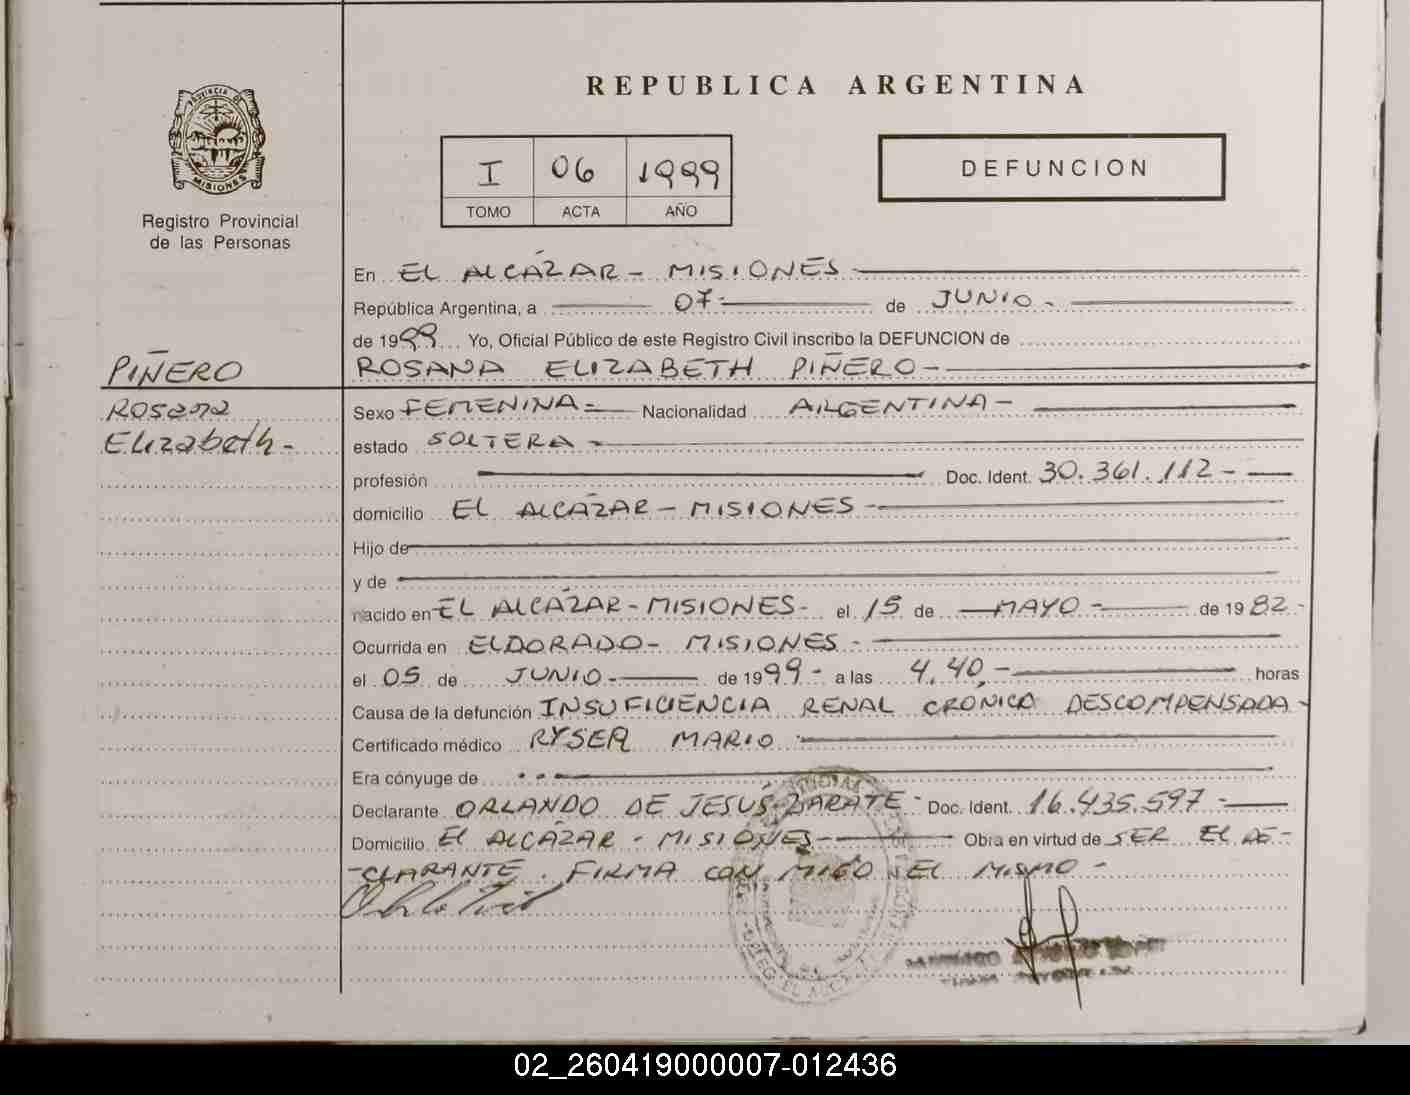 REPUBLICA ARGENTINA
PROVINCIA DE
MISIONES
Registro Provincial
de las Personas
I 06 1999
TOMO ACTA AÑO
DEFUNCION
En EL ALCÁZAR - MISIONES -
República Argentina, a 07- de JUNIO -
de 1999 Yo, Oficial Público de este Registro Civil inscribo la DEFUNCION de
PIÑERO
ROSANA ELIZABETH PIÑERO -
Rosana
Elizabeth -
Sexo FEMENINA - Nacionalidad ARGENTINA -
estado SOLTERA -
profesión Doc. Ident. 30.361.112 -
domicilio EL ALCÁZAR - MISIONES -
Hijo de
y de
nacido en EL ALCÁZAR - MISIONES - el 15 de MAYO - de 1982 -
Ocurrida en ELDORADO - MISIONES -
el 05 de JUNIO - de 1999 - a las 4,40,- horas
Causa de la defunción INSUFICIENCIA RENAL CRONICA DESCOMPENSADA -
Certificado médico RYSER MARIO
Era cónyuge de
Declarante ORLANDO DE JESÚS ZARATE - Doc. Ident. 16.435.597 -
Domicilio EL ALCÁZAR - MISIONES - Obra en virtud de SER EL DE-
-CLARANTE. FIRMA CON MIGO EL MISMO -
02_260419000007-012436